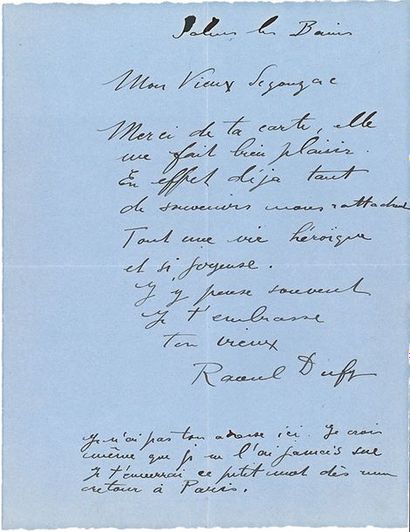 Salins les Bains
Mon Vieux Segonzac
Merci de ta carte, elle
me fait bien plaisir.
En effet déja tant
de souvenirs nous rattachent
Tout une vie héroïque
et si joyeuse.
J'y pense souvent
Je t'embrasse
ton vieux
Raoul Dufy
Je n'ai pas ton adresse ici. Je crois
même que je ne l'ai jamais sue
Je t'enverrai ce petit mot dès mon
retour à Paris.